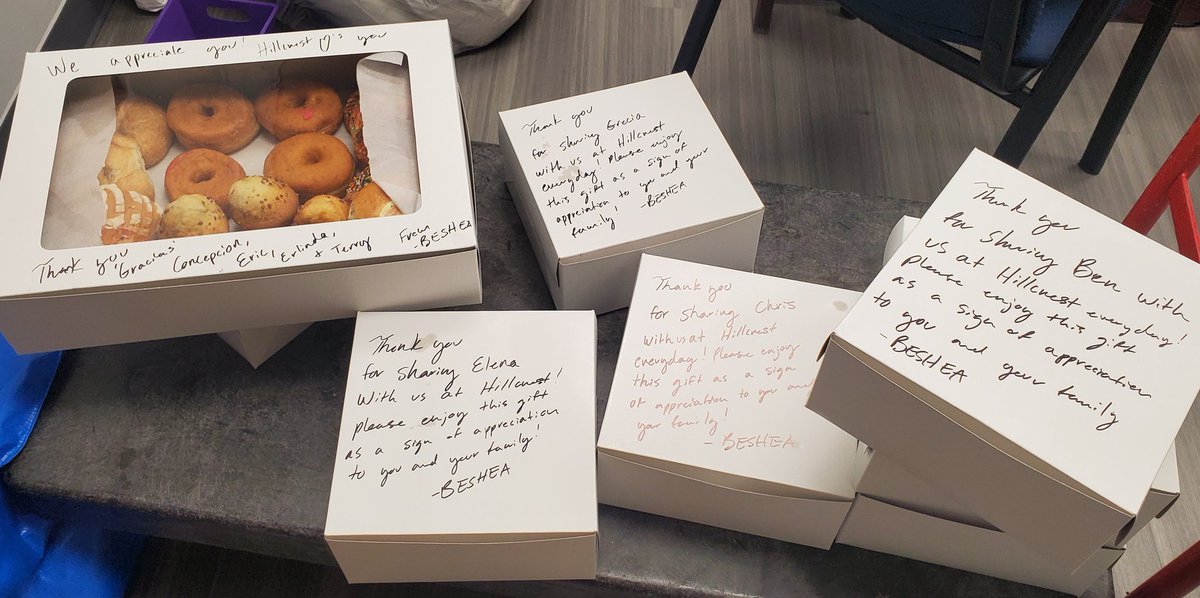 We appreciate you! Hillcrest ♡'s you
Thank you "Gracias" Concepcion, Eric, Erlinda, + Terry From -BESHEA
Thank you
for sharing Grecia
with us at Hillcrest
everyday! Please enjoy
this gift as a sign of
appreciation to you and your
family! -BESHEA
Thank you
for sharing Elena
With us at Hillcrest!
please enjoy this gift
as a sign of appreciation
to you and your family!
-BESHEA
Thank you
for sharing Chris
with us at Hillcrest
everyday! Please enjoy
this gift as a sign
of appreciation to you and
your family!
- BESHEA
Thank you
for sharing Ben with
us at Hillcrest everyday!
Please enjoy this gift
as a sign of appreciation
to you and your family
-BESHEA